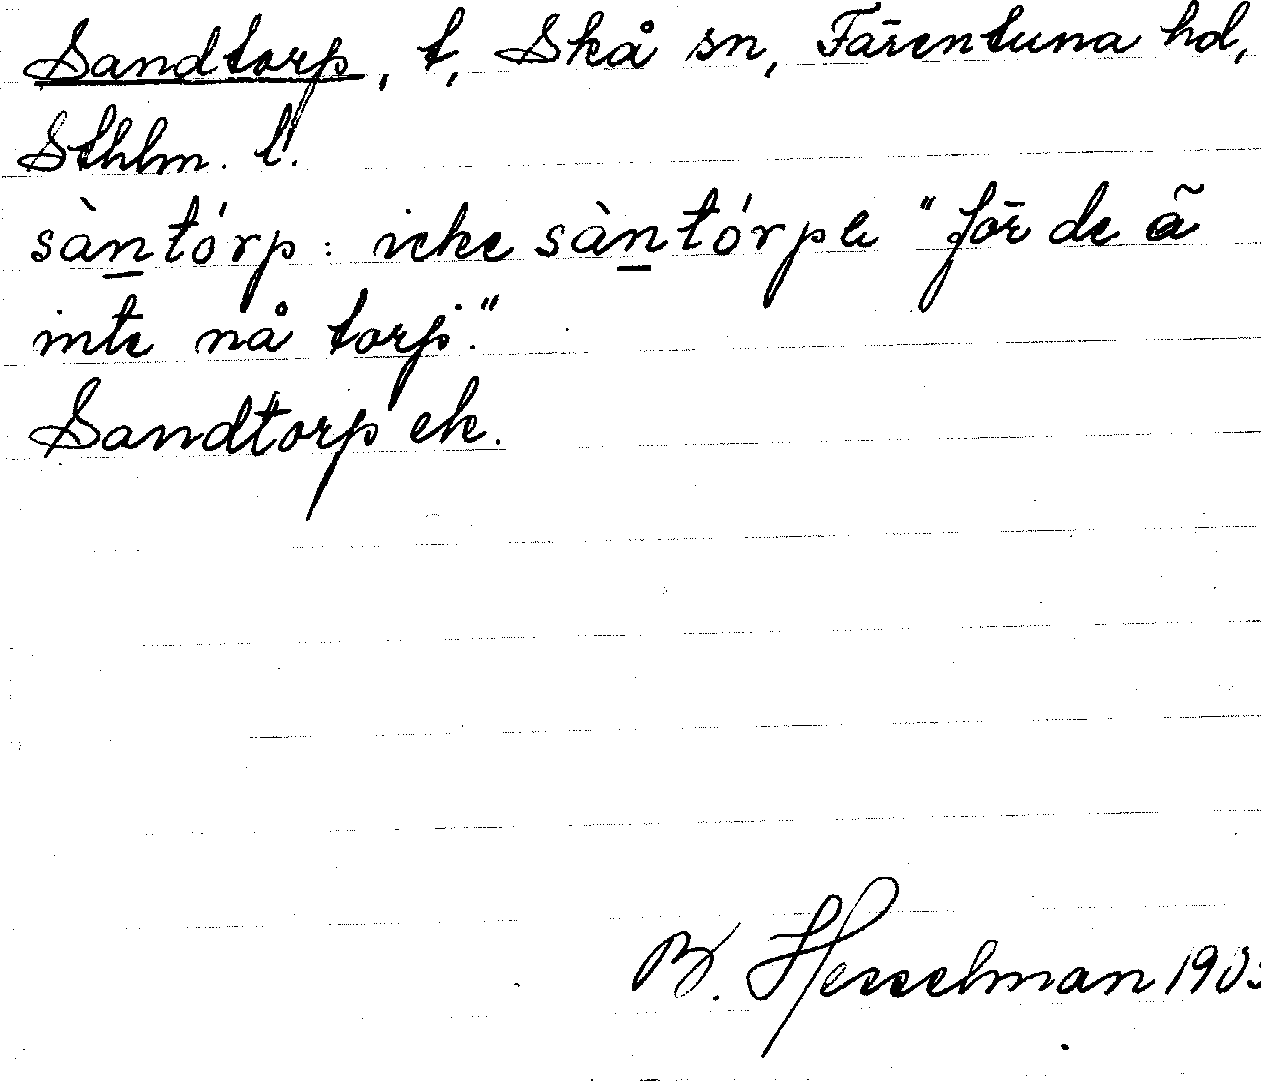 Sandtorp, t, Skå sn, Färentuna hd,
Sthlm. l.
sàntórp: icke sàntórpe "för de ä
inte nå torp."
Sandtorp ek.
B. Hesselman